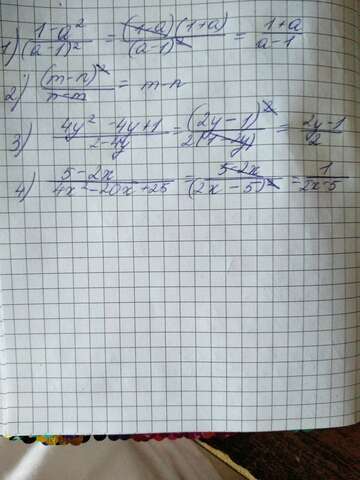 1) (1-a²)/(a-1)² = (1-a)(1+a)/(a-1)² = (1+a)/(a-1)
2) (m-n)²/(n-m) = m-n
3) (4y²-4y+1)/(2-4y) = (2y-1)²/2(1-2y) = (2y-1)/2
4) (5-2x)/(4x²-20x+25) = (5-2x)/(2x-5)² = 1/(2x-5)